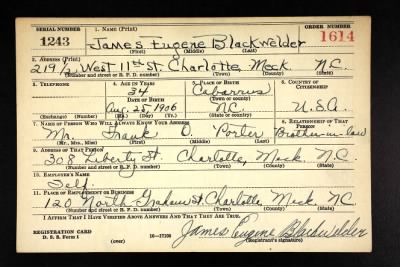 SERIAL NUMBER 1. NAME (Print) ORDER NUMBER
1243 James Eugene Blackwelder 1614
(First) (Middle) (Last)
2. ADDRESS (Print)
219½ West 11th St. Charlotte, Meck. N.C.
(Number and street or R. F. D. number) (Town) (County) (State)
3. TELEPHONE 4. AGE IN YEARS 5. PLACE OF BIRTH 6. COUNTRY OF CITIZENSHIP
34 Cabarrus
DATE OF BIRTH (Town or county)
Aug. 25, 1906 N.C. U.S.A.
(Exchange) (Number) (Mo.) (Day) (Yr.) (State or country)
7. NAME OF PERSON WHO WILL ALWAYS KNOW YOUR ADDRESS 8. RELATIONSHIP OF THAT PERSON
Mr. Frank O. Porter Brother-in-law
(Mr., Mrs., Miss) (First) (Middle) (Last)
9. ADDRESS OF THAT PERSON
308 Liberty St. Charlotte, Meck. N.C.
(Number and street or R. F. D. number) (Town) (County) (State)
10. EMPLOYER'S NAME
Self
11. PLACE OF EMPLOYMENT OR BUSINESS
120 North Graham St. Charlotte Meck. N.C.
(Number and street or R. F. D. number) (Town) (County) (State)
I AFFIRM THAT I HAVE VERIFIED ABOVE ANSWERS AND THAT THEY ARE TRUE.
REGISTRATION CARD James Eugene Blackwelder
D. S. S. Form 1 (over) 16—17105 (Registrant's signature)